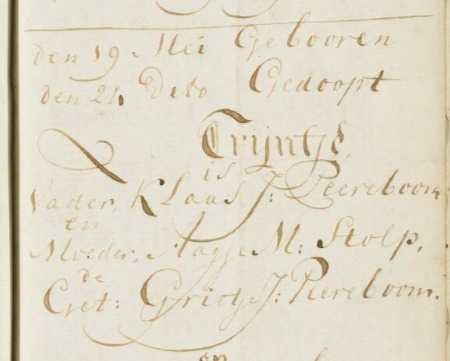 den 19 Mei Gebooren
den 24 Dito Gedoopt
Trijntje
is
Vader, Klaas J: Peereboom
en
Moeder, Aagje M: Stolp,
de
Get: Grietje J: Peereboom.
en